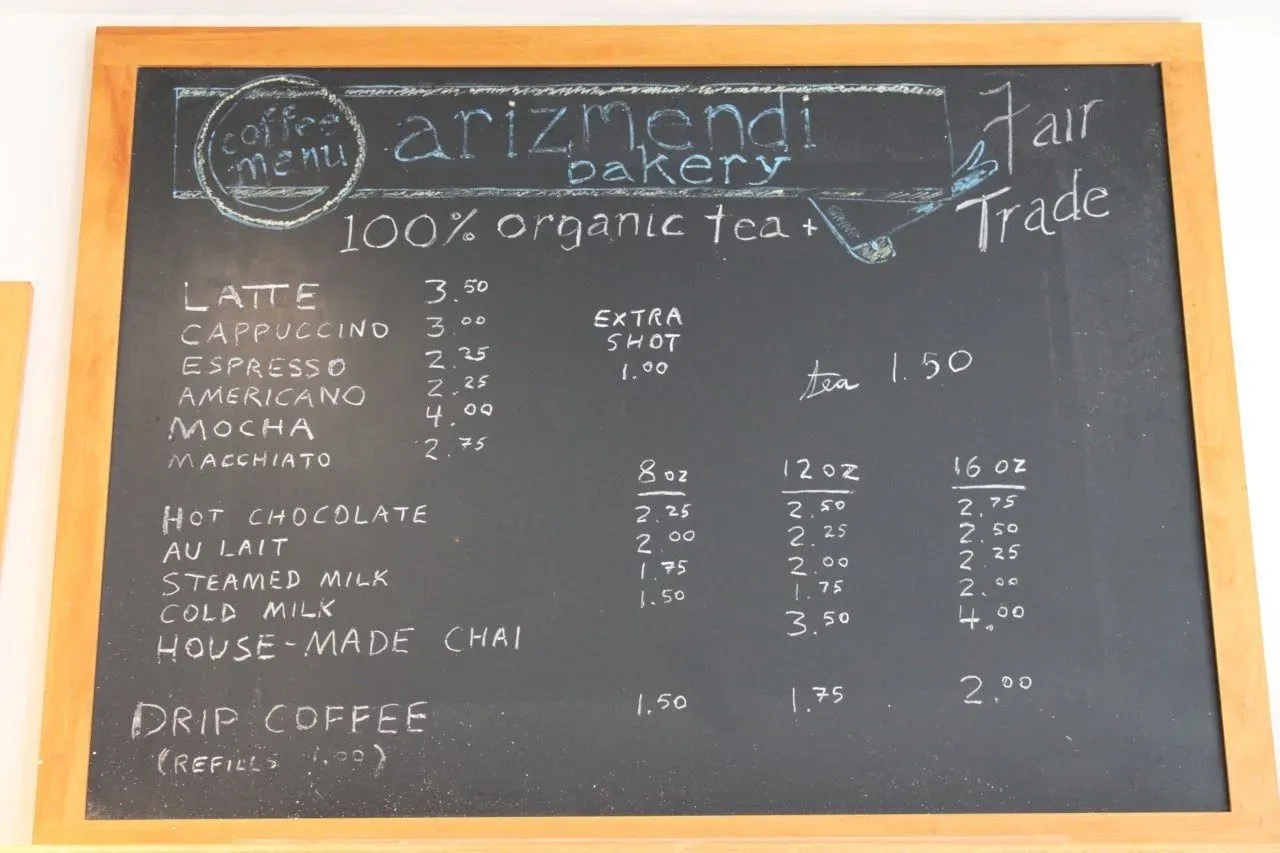 coffee menu
arizmendi
bakery
Fair
Trade
100% organic tea +
LATTE 3.50
CAPPUCCINO 3.00
ESPRESSO 2.25
AMERICANO 2.25
MOCHA 4.00
MACCHIATO 2.75
EXTRA
SHOT
1.00
tea 1.50
8 oz 12 oz 16 oz
HOT CHOCOLATE 2.25 2.50 2.75
AU LAIT 2.00 2.25 2.50
STEAMED MILK 1.75 2.00 2.25
COLD MILK 1.50 1.75 2.00
HOUSE-MADE CHAI 3.50 4.00
DRIP COFFEE 1.50 1.75 2.00
(REFILLS 1.00)